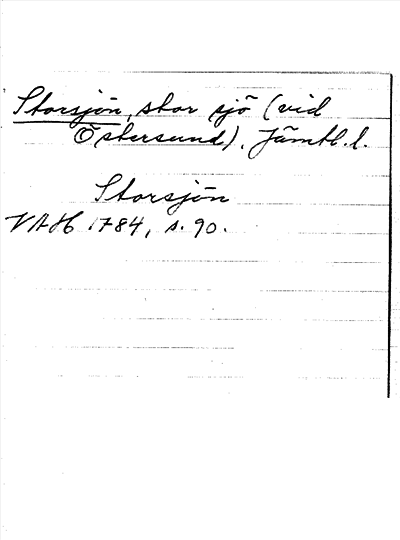 Storsjön, stor sjö (vid
Östersund), Jämtl. l.
Storsjön
VAH 1784, s. 90.